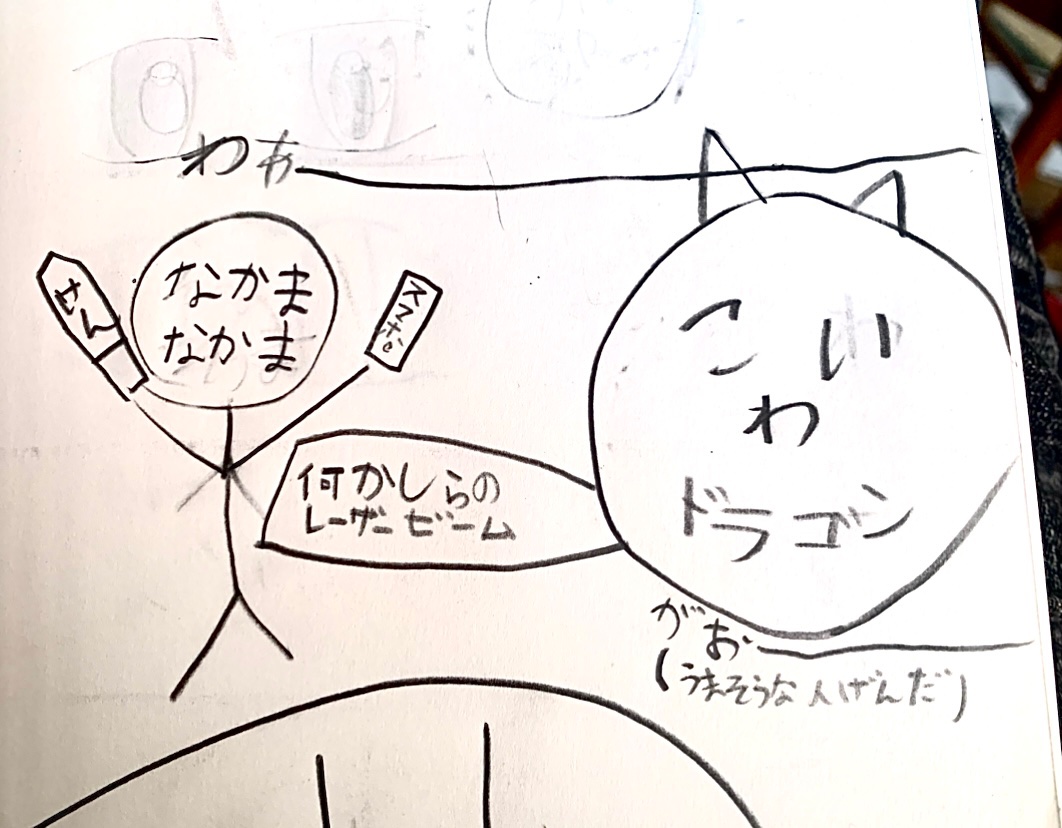 わぁー
なかま
なかま
けん
スマホ
何かしらの
レーザービーム
こわい
ドラゴン
がおー
(うまそうな人げんだ)